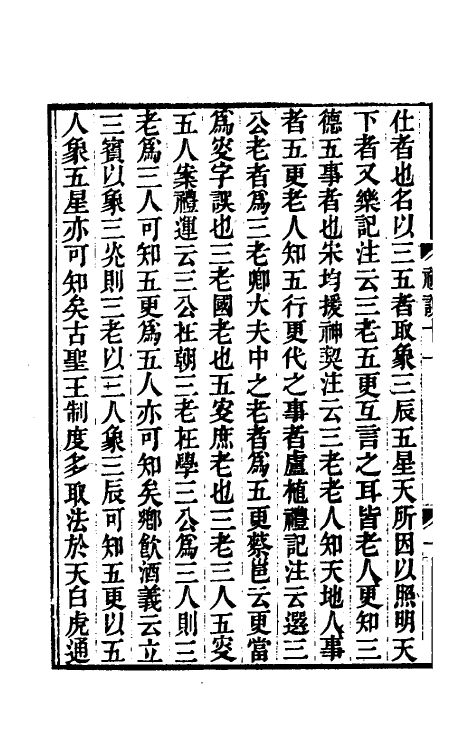 仕者也名以三五者取象三辰五星天所因以照明天
下者又樂記注云三老五更互言之耳皆老人更知三
德五事者也宋均援神契注云三老老人知天地人事
者五更老人知五行更代之事者盧植禮記注云選三
公老者爲三老卿大夫中之老者爲五更蔡邕云更當
爲叜字誤也三老國老也五叜庶老也三老三人五叜
五人案禮運云三公在朝三老在學三公爲三人則三
老爲三人可知五更爲五人亦可知矣鄉飮酒義云立
三賓以象三光則三老以三人象三辰可知五更以五
人象五星亦可知矣古聖王制度多取法於天白虎通
禮說十一